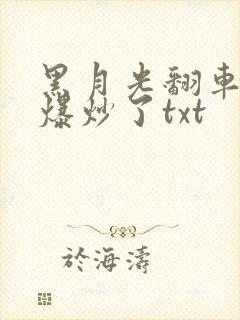 黑月光翻車
爆炒了txt
於海濤